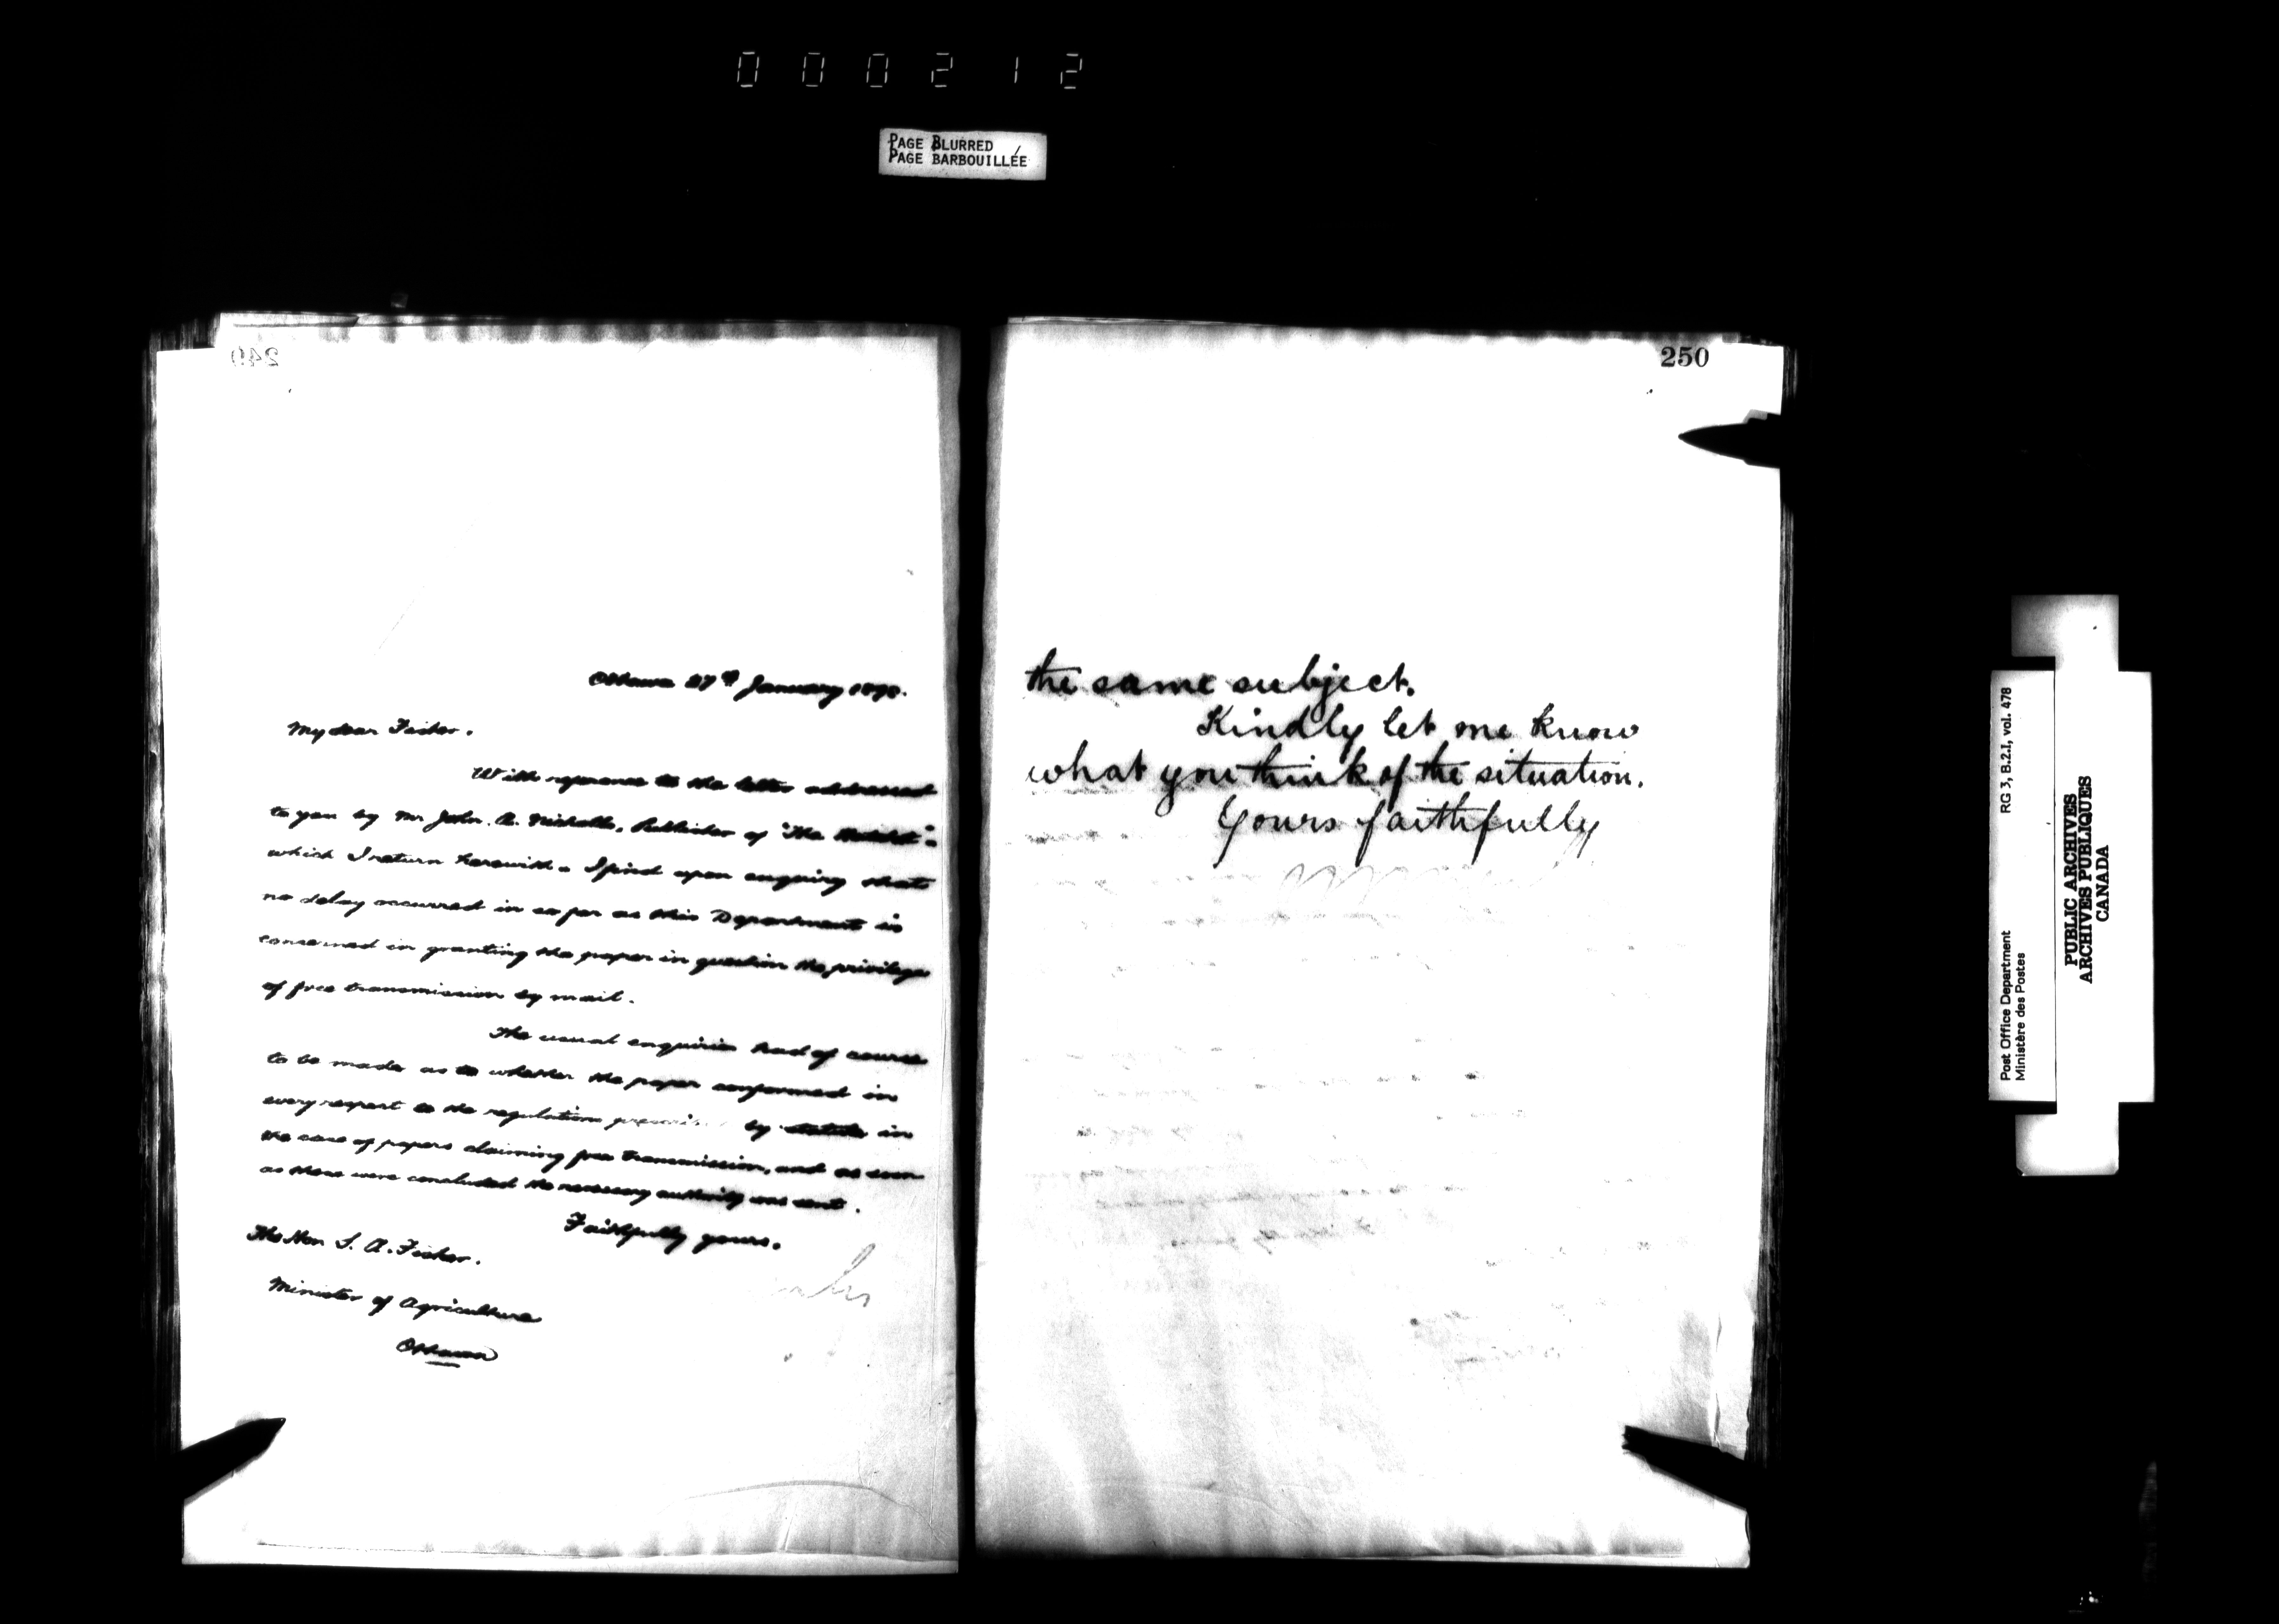 000212
PAGE BLURRED
PAGE BARBOUILLÉE
249
Ottawa 27th January 1898.
My dear Fisher.
With reference to the letter addressed
to you by Mr John. A. Nicholls, Publisher of "The
which I return herewith - I find upon enquiry that
no delay occurred in so far as this Department is
concerned in granting the paper in question the privilege
of free transmission by mail.
The usual enquiries had of course
to be made as to whether the paper conformed in
every respect to the regulations by statute in
the case of papers claiming free transmission, and as soon
as these were concluded the necessary authority was sent.
Faithfully yours.
The Hon S. A. Fisher.
Minister of Agriculture
Ottawa
250
the same subject.
Kindly let me know
what you think of the situation.
Yours faithfully
Post Office Department
Ministère des Postes
RG 3, B.2.I, vol. 478
PUBLIC ARCHIVES
ARCHIVES PUBLIQUES
CANADA